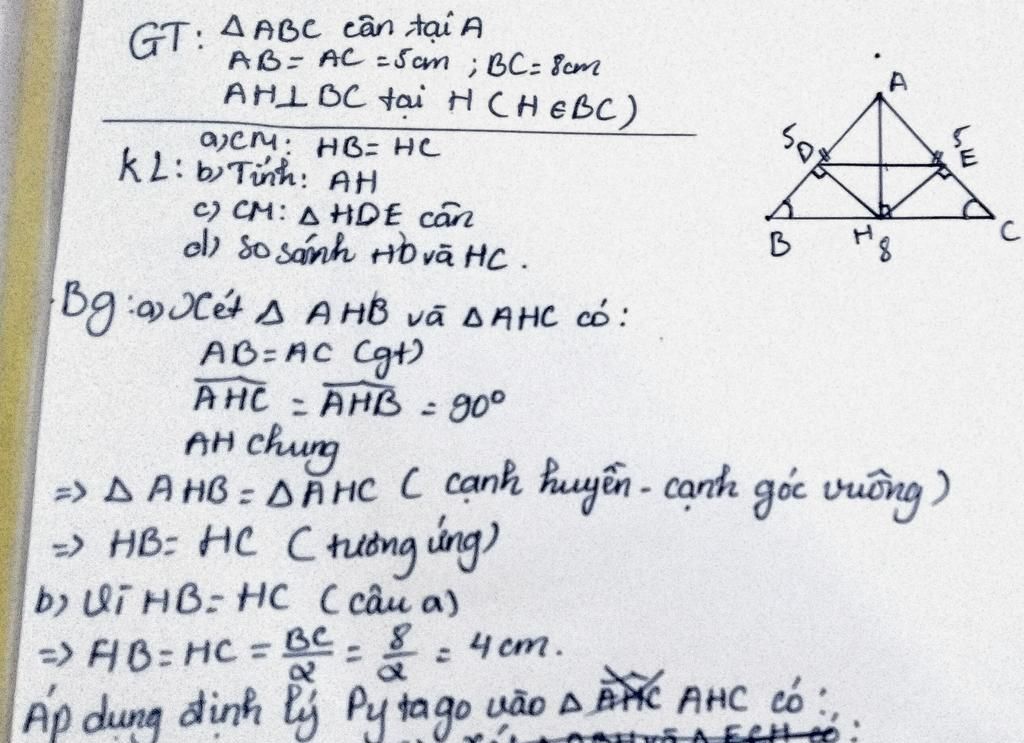 GT: △ABC cân tại A
AB = AC = 5cm ; BC = 8cm
AH⊥BC tại H (H∈BC)
a) CM: HB = HC
KL: b) Tính: AH
c) CM: △HDE cân
d) So sánh HD và HC.
A
5 D
5 E
B
H
8
C
Bg: a) Xét △ AHB và △AHC có:
AB = AC (gt)
AHC = AHB = 90°
AH chung
=> △ AHB = △AHC ( cạnh huyền - cạnh góc vuông )
=> HB = HC ( tương ứng)
b) Vì HB = HC ( câu a)
=> HB = HC = BC/2 = 8/2 = 4 cm.
Áp dụng định lý Pytago vào △ AHC có: